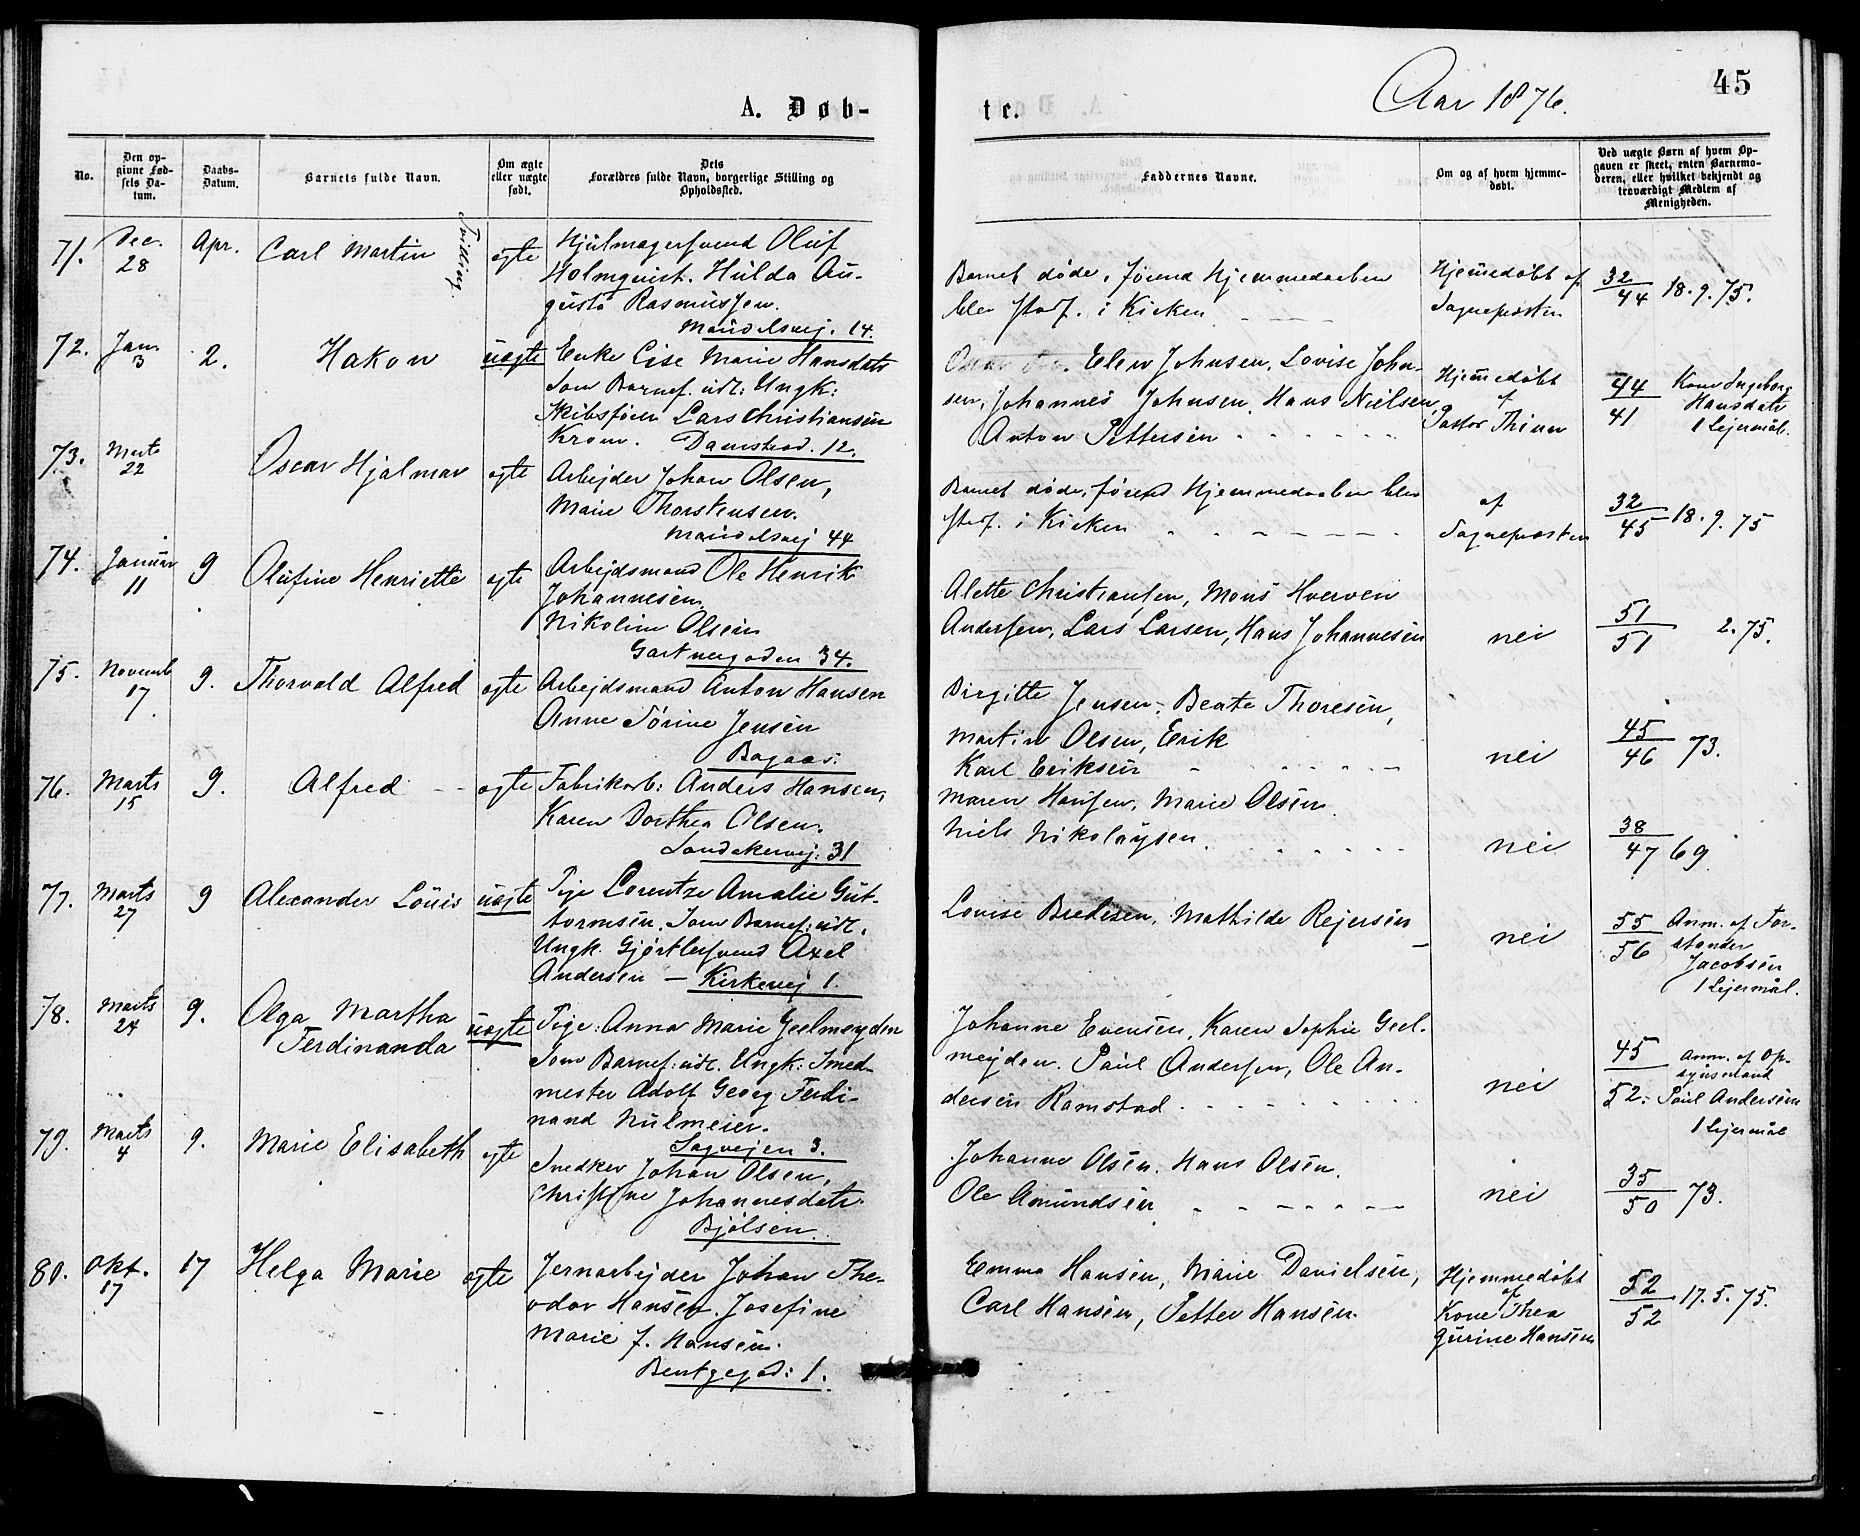 A. Døb-
te.
Aar 1876.
45
No.
Den op-
givne Fød-
sels Da-
tum.
Daabs-
Datum.
Barnets fulde Navn.
Om ægte
eller uægte
født.
Dets
Forældres fulde Navn, borgerlige Stilling og
Opholdssted.
Faddernes Navne.
Om og af hvem hjemme-
døbt.
Ved uægte Børn af hvem Op-
gaven er skeet, enten Barnemo-
deren, eller hvilket bekjendt og
troværdigt Medlem af
Menigheden.
71.
Dec.
28
Apr.
Carl Martin
Tvilling.
egte
Hjulmagersvend Oluf
Holmquist. Hulda Au-
gusta Rasmussen.
Maridalsvej. 14.
Barnet døde, førend Hjemmedaaben
blev stadf. i Kirken
Hjemedøbt af
Sognepresten
32
44 18.9.75.
72.
Jan.
3
2.
Hakon
uegte
Enke Lise Marie Hansdatr
Som Barnef. udl: Ungk:
Skibsfører Lars Christiansen
Krom. Damstred. 12.
Elen Johnsen, Lovise John-
sen, Johannes Johnsen, Hans Nielsen,
Anton Pettersen
Hjemedøbt
af
Pastor Thinn
44
41
Kone Ingeborg
Hansdatr
1 Lejermål.
73.
Marts
22
Oscar Hjalmar
egte
Arbejder Johan Olsen,
Marie Thorstensen.
Maridalsvej 44
Barnet døde, førend Hjemmedaaben blev
stadf. i Kirken
af
Sognepresten
32
45 18.9.75
74.
Januar
11
9
Olufine Henriette
egte
Arbejdsmand Ole Henrik
Johannesen
Nikoline Olsen
Gartnergaden 34.
Alette Christiansen, Mons Hverven
Andersen, Lars Larsen, Hans Johannesen
nei
51
51 2.75.
75.
Novemb
17
9.
Thorvald Alfred
egte
Arbejdsmand Anton Hansen
Anne Sørine Jensen
Bagaas.
Birgitte Jensen, Beate Thoresen,
Martin Olsen, Erik
Karl Eriksen
nei
45
46 73.
76.
Marts
15
9.
Alfred
egte
Fabrikarb: Anders Hansen,
Karen Dorthea Olsen.
Sandakervej. 31
Maren Hansen, Marie Olsen
Niels Nikolaysen.
nei
38
47 69
77.
Marts
27
9
Alexander Louis
uegte
Pige Lorentze Amalie Gut-
tormsen. Som Barnef: udl.
Ungk. Gjørtlersvend Axel
Andersen – Kirkevej 1.
Lovise Bredesen, Mathilde Rejersen
nei
55
56
Anm. af For-
stander
Jacobsen
1 Lejermål.
78.
Marts
24
9.
Olga Martha
Ferdinanda
uegte
Pige: Anna Marie Geelmeyden
Som Barnef: udl. Ungk: Smed-
mester Adolf Georg Ferdi-
nand Nulmeier.
Sagvejen 3.
Johanne Evensen, Karen Sophie Geel-
meyden. Paul Andersen, Ole An-
dersen Ramstad
nei
45
52.
Anm. af Op-
synsmand
Paul Andersen
1 Lejermål
79.
Marts
4
9.
Marie Elisabeth
egte
Snedker Johan Olsen,
Christine Johannesdatr.
Bjølsen.
Johanne Olsen. Hans Olsen.
Ole Amundsen
nei
35
50 73.
80.
Okt.
17
17
Helga Marie
egte
Jernarbejder Johan The-
odor Hansen. Josefine
Marie f. Hansen.
Bentsegad: 1.
Emma Hansen, Marie Danielsen,
Carl Hansen, Petter Hansen.
Hjemmedøbt
af
Kone Thea
Gurine Hansen
52
52 17.5.75.